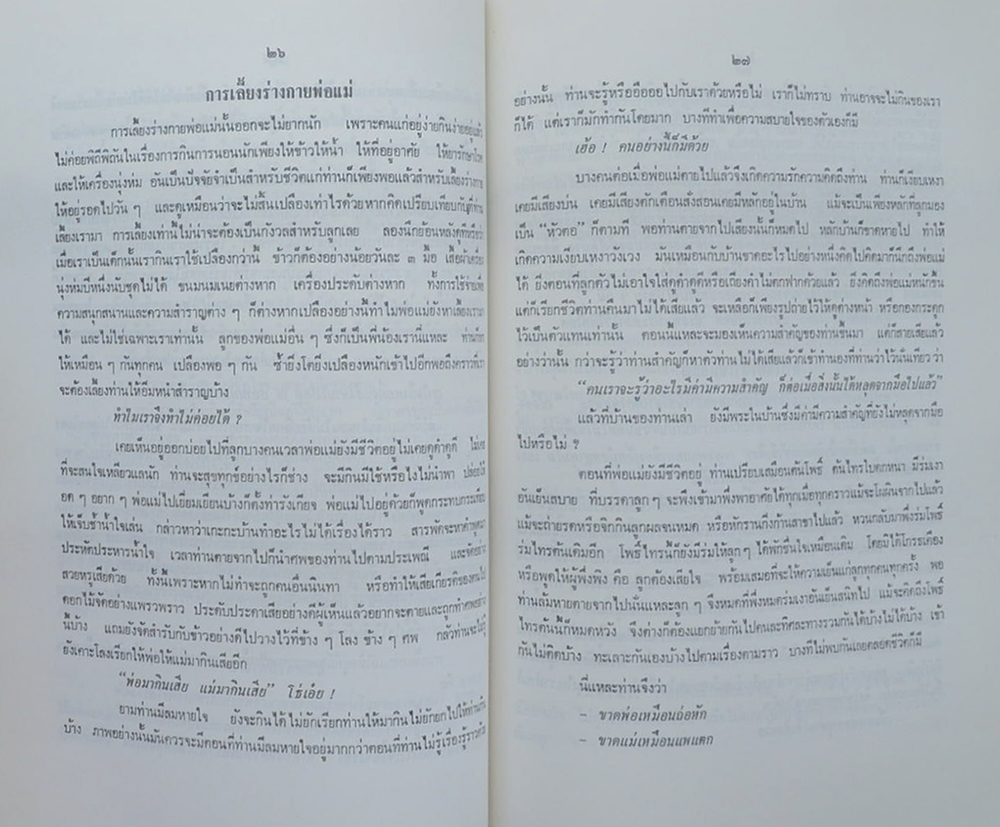 ๒๖
การเลี้ยงร่างกายพ่อแม่
การเลี้ยงร่างกายพ่อแม่นั้นออกจะไม่ยากนัก เพราะคนแก่อยู่ง่ายกินง่ายอยู่แล้ว
ไม่ค่อยพิถีพิถันในเรื่องการกินการนอนนักเพียงให้ข้าวให้น้ำ ให้ที่อยู่อาศัย ให้ยารักษาโรค
และให้เครื่องนุ่งห่ม อันเป็นปัจจัยจำเป็นสำหรับชีวิตแก่ท่านก็เพียงพอแล้วสำหรับเลี้ยงร่างกาย
ให้อยู่รอดไปวัน ๆ และดูเหมือนว่าจะไม่สิ้นเปลืองเท่าไรด้วยหากคิดเปรียบเทียบกับที่ท่าน
เลี้ยงเรามา การเลี้ยงเท่านี้ไม่น่าจะต้องเป็นกังวลสำหรับลูกเลย ลองนึกย้อนหลังดูทีหรือว่า
เมื่อเราเป็นเด็กนั้นเรากินเราใช้เปลืองกว่านี้ ข้าวก็ต้องอย่างน้อยวันละ ๓ มื้อ เสื้อผ้าเครื่อง
นุ่งห่มปีหนึ่งนับชุดไม่ได้ ขนมนมเนยต่างหาก เครื่องประดับต่างหาก ทั้งการใช้จ่ายเพื่อ
ความสนุกสนานและความสำราญต่าง ๆ ก็ต่างหากเปลืองอย่างนี้ทำไมพ่อแม่ยังหาเลี้ยงเรามา
ได้ และไม่ใช่เฉพาะเราเท่านั้น ลูกของพ่อแม่อื่น ๆ ซึ่งก็เป็นพี่น้องเรานี่แหละ ท่านก็หา
ให้เหมือน ๆ กันทุกคน เปลืองพอ ๆ กัน ซ้ำยิ่งโตยิ่งเปลืองหนักเข้าไปอีกพอถึงคราวที่เรา
จะต้องเลี้ยงท่านให้อิ่มหนำสำราญบ้าง
ทำไมเราจึงทำไม่ค่อยได้ ?
เคยเห็นอยู่ออกบ่อยไปที่ลูกบางคนเวลาพ่อแม่ยังมีชีวิตอยู่ไม่เคยดูดำดูดี ไม่เคย
ที่จะสนใจเหลียวแลนัก ท่านจะสุขทุกข์อย่างไรก็ช่าง จะมีกินมีใช้หรือไงไม่นำพา ปล่อยให้
อด ๆ อยาก ๆ พ่อแม่ไปเยี่ยมเยียนบ้างก็ตั้งท่ารังเกียจ พ่อแม่ไปอยู่ด้วยก็พูดกระทบกระเทียบ
ให้เจ็บช้ำน้ำใจเล่น กล่าวหาว่าเกะกะบ้านทำอะไรไม่ได้เรื่องได้ราว สารพัดจะหาคำพูดมา
ประหัตประหารน้ำใจ เวลาท่านตายจากไปก็นำศพของท่านไปตามประเพณี และจัดอย่าง
สวยหรูเสียด้วย ทั้งนี้เพราะหากไม่ทำจะถูกคนอื่นนินทา หรือทำให้เสียเกียรติของตนไป
ดอกไม้จัดอย่างแพรวพราว ประดับประดาเสียอย่างดีผู้เห็นแล้วอยากจะตายและถูกทำศพอย่าง
นี้บ้าง แถมยังจัดสำรับกับข้าวอย่างดีไปวางไว้ที่ข้าง ๆ โลง ข้าง ๆ ศพ กลัวท่านจะไม่รู้
ยังเคาะโลงเรียกให้พ่อให้แม่มากินเสียอีก
“พ่อมากินเสีย แม่มากินเสีย” โธ่เอ๋ย !
ยามท่านมีลมหายใจ ยังจะกินได้ ไม่ยักเรียกท่านให้มากินไม่ยักยกไปให้ท่านกิน
บ้าง ภาพอย่างนั้นมันควรจะมีตอนที่ท่านมีลมหายใจอยู่มากกว่าตอนที่ท่านไม่รู้เรื่องรู้ราวด้วย
๒๗
อย่างนั้น ท่านจะรู้หรืออือออไปกับเราด้วยหรือไม่ เราก็ไม่ทราบ ท่านอาจจะไม่กินของเรา
ก็ได้ แต่เราก็มักทำกันโดยมาก บางทีทำเพื่อความสบายใจของตัวเองก็มี
เฮ้อ ! คนอย่างนี้ก็มีด้วย
บางคนต่อเมื่อพ่อแม่ตายไปแล้วจึงเกิดความรักความคิดถึงท่าน ท่านก็เงียบเหงา
เคยมีเสียงบ่น เคยมีเสียงตักเตือนสั่งสอนเคยมีหลักอยู่ในบ้าน แม้จะเป็นเพียงหลักที่ลูกมอง
เป็น “หัวตอ” ก็ตามที พอท่านตายจากไปเสียงนั้นก็หมดไป หลักบ้านก็ขาดหายไป ทำให้
เกิดความเงียบเหงาวังเวง มันเหมือนกับบ้านขาดอะไรไปอย่างหนึ่งคิดไปคิดมาก็นึกถึงพ่อแม่
ได้ ยิ่งตอนที่ลูกตัวไม่เอาใจใส่ดูดำดูดีหรือเถียงคำไม่ตกฟากด้วยแล้ว ยิ่งคิดถึงพ่อแม่หนักขึ้น
แต่ก็เรียกชีวิตท่านคืนมาไม่ได้เสียแล้ว จะเหลือก็เพียงรูปถ่ายไว้ให้ดูต่างหน้า หรือกองกระดูก
ไว้เป็นตัวแทนเท่านั้น ตอนนี้แหละจะมองเห็นความสำคัญของท่านขึ้นมา แต่ก็สายเสียแล้ว
อย่างว่านั้น กว่าจะรู้ว่าท่านสำคัญก็หาตัวท่านไม่ได้เสียแล้วก็เข้าทำนองที่ท่านว่าไว้นั่นเทียวว่า
“คนเราจะรู้ว่าอะไรมีค่ามีความสำคัญ ก็ต่อเมื่อสิ่งนั้นได้หลุดจากมือไปแล้ว”
แล้วที่บ้านของท่านเล่า ยังมีพระในบ้านซึ่งมีค่ามีความสำคัญที่ยังไม่หลุดจากมือ
ไปหรือไม่ ?
ตอนที่พ่อแม่ยังมีชีวิตอยู่ ท่านเปรียบเสมือนต้นโพธิ์ ต้นไทรใบดกหนา มีร่มเงา
อันเย็นสบาย ที่บรรดาลูก ๆ จะพึงเข้ามาพึ่งพาอาศัยได้ทุกเมื่อทุกคราวแม้จะโผผินจากไปแล้ว
แม้จะถ่ายรดหรือจิกกินลูกผลจนหมด หรือหักรานกิ่งก้านสาขาไปแล้ว หวนกลับมาพึ่งร่มโพธิ์
ร่มไทรต้นเดิมอีก โพธิ์ไทรนี้ก็ยังมีร่มให้ลูก ๆ ได้พักชื่นใจเหมือนเดิม โดยมิได้โกรธเคือง
หรือพูดให้ผู้พึ่งพิง คือ ลูกต้องเสียใจ พร้อมเสมอที่จะให้ความเย็นแก่ลูกทุกคนทุกครั้ง พอ
ท่านล้มหายตายจากไปนั่นแหละลูก ๆ จึงหมดที่พึ่งหมดร่มเงาอันเย็นสนิทไป แม้จะคิดถึงโพธิ์
ไทรต้นนี้ก็หมดหวัง จึงต่างก็ต้องแยกย้ายกันไปคนละทิศละทางรวมกันได้บ้างไม่ได้บ้าง เข้า
กันไม่ติดบ้าง ทะเลาะกันเองบ้างไปตามเรื่องตามราว บางทีไม่พบกันเลยตลอดชีวิตก็มี
นี่แหละท่านจึงว่า
– ขาดพ่อเหมือนถ่อหัก
– ขาดแม่เหมือนแพแตก